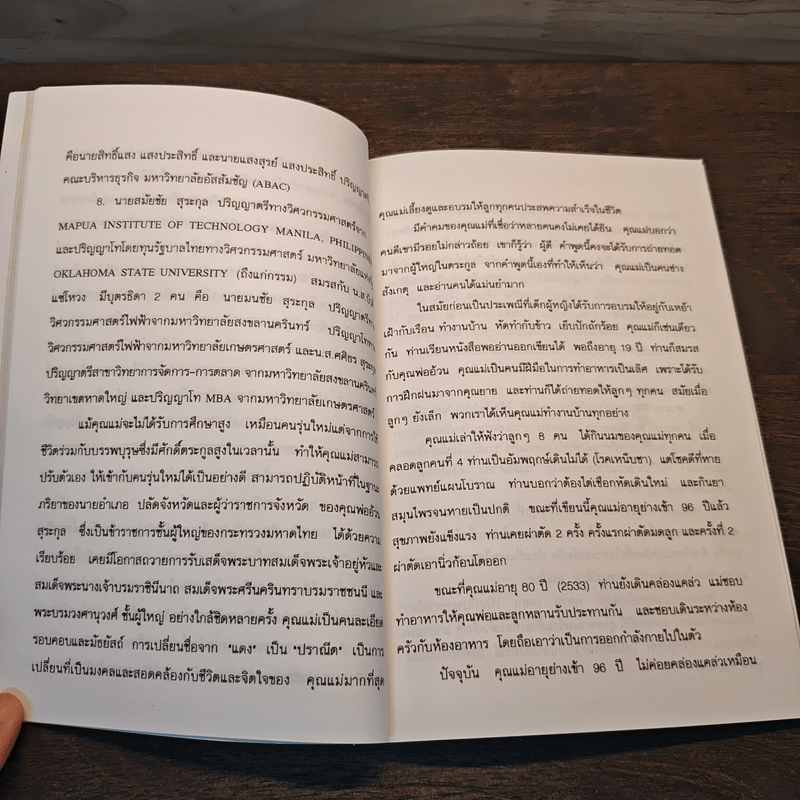 คือนายสิทธิ์แสง แสงประสิทธิ์ และนายแสงสุรย์ แสงประสิทธิ์ ปริญญาตรี
คณะบริหารธุรกิจ มหาวิทยาลัยอัสสัมชัญ (ABAC)
8. นายสมัยชัย สุระกุล ปริญญาตรีทางวิศวกรรมศาสตร์จาก
MAPUA INSTITUTE OF TECHNOLOGY MANILA, PHILIPPINES
และปริญญาโทโดยทุนรัฐบาลไทยทางวิศวกรรมศาสตร์ มหาวิทยาลัย
OKLAHOMA STATE UNIVERSITY (ถึงแก่กรรม) สมรสกับ น.ส.
แซ่โหวง มีบุตรธิดา 2 คน คือ นายมนชัย สุระกุล ปริญญาตรีทาง
วิศวกรรมศาสตร์ไฟฟ้าจากมหาวิทยาลัยสงขลานครินทร์ ปริญญาโททาง
วิศวกรรมศาสตร์ไฟฟ้าจากมหาวิทยาลัยเกษตรศาสตร์ และน.ส.ศศิธร สุระกุล
ปริญญาตรีสาขาวิทยาการจัดการ-การตลาด จากมหาวิทยาลัยสงขลานครินทร์
วิทยาเขตหาดใหญ่ และปริญญาโท MBA จากมหาวิทยาลัยเกษตรศาสตร์
แม้คุณแม่จะไม่ได้รับการศึกษาสูง เหมือนคนรุ่นใหม่แต่จากการใช้
ชีวิตร่วมกับบรรพบุรุษซึ่งมีศักดิ์ตระกูลสูงในเวลานั้น ทำให้คุณแม่สามารถ
ปรับตัวเอง ให้เข้ากับคนรุ่นใหม่ได้เป็นอย่างดี สามารถปฏิบัติหน้าที่ในฐานะ
ภริยาของนายอำเภอ ปลัดจังหวัดและผู้ว่าราชการจังหวัด ของคุณพ่ออ้วน
สุระกุล ซึ่งเป็นข้าราชการชั้นผู้ใหญ่ของกระทรวงมหาดไทย ได้ด้วยความ
เรียบร้อย เคยมีโอกาสถวายการรับเสด็จพระบาทสมเด็จพระเจ้าอยู่หัวและ
สมเด็จพระนางเจ้าบรมราชินีนาถ สมเด็จพระศรีนครินทราบรมราชชนนี และ
พระบรมวงศานุวงศ์ ชั้นผู้ใหญ่ อย่างใกล้ชิดหลายครั้ง คุณแม่เป็นคนละเอียด
รอบคอบและมัธยัสถ์ การเปลี่ยนชื่อจาก "แดง" เป็น "ปราณีต" เป็นการ
เปลี่ยนที่เป็นมงคลและสอดคล้องกับชีวิตและจิตใจของ คุณแม่มากที่สุด
คุณแม่เลี้ยงดูและอบรมให้ลูกทุกคนประสพความสำเร็จในชีวิต
มีคำคมของคุณแม่ที่เชื่อว่าหลายคนคงไม่เคยได้ยิน คุณแม่บอกว่า
คนดีเขามีรอยไม่กล่าวถ้อย เขาก็รู้ว่า ผู้ดี คำพูดนี้คงจะได้รับการถ่ายทอด
มาจากผู้ใหญ่ในตระกูล จากคำพูดนี้เองที่ทำให้เห็นว่า คุณแม่เป็นคนช่าง
สังเกตุ และอ่านคนได้แม่นยำมาก
ในสมัยก่อนเป็นประเพณีที่เด็กผู้หญิงได้รับการอบรมให้อยู่กับเหย้า
เฝ้ากับเรือน ทำงานบ้าน หัดทำกับข้าว เย็บปักถักร้อย คุณแม่ก็เช่นเดียว
กัน ท่านเรียนหนังสือพออ่านออกเขียนได้ พอถึงอายุ 19 ปี ท่านก็สมรส
กับคุณพ่ออ้วน คุณแม่เป็นคนมีฝีมือในการทำอาหารเป็นเลิศ เพราะได้รับ
การฝึกฝนมาจากคุณยาย และท่านก็ได้ถ่ายทอดให้ลูกๆ ทุกคน สมัยเมื่อ
ลูกๆ ยังเล็ก พวกเราได้เห็นคุณแม่ทำงานบ้านทุกอย่าง
คุณแม่เล่าให้ฟังว่าลูกๆ 8 คน ได้กินนมของคุณแม่ทุกคน เมื่อ
คลอดลูกคนที่ 4 ท่านเป็นอัมพฤกษ์เดินไม่ได้ (โรคเหน็บชา) แต่โชคดีที่หาย
ด้วยแพทย์แผนโบราณ ท่านบอกว่าต้องไต่เชือกหัดเดินใหม่ และกินยา
สมุนไพรจนหายเป็นปกติ ขณะที่เขียนนี้คุณแม่อายุย่าง 96 ปีแล้ว
สุขภาพยังแข็งแรง ท่านเคยผ่าตัด 2 ครั้ง ครั้งแรกผ่าตัดมดลูก และครั้งที่ 2
ผ่าตัดเอานิ่วก้อนโตออก
ขณะที่คุณแม่อายุ 80 ปี (2533) ท่านยังเดินคล่องแคล่ว แม่ชอบ
ทำอาหารให้คุณพ่อและลูกหลานรับประทานกัน และชอบเดินระหว่างห้อง
ครัวกับห้องอาหาร โดยถือเอาว่าเป็นการออกกำลังกายไปในตัว
ปัจจุบัน คุณแม่อายุย่างเข้า 96 ปี ไม่ค่อยคล่องแคล่วเหมือน